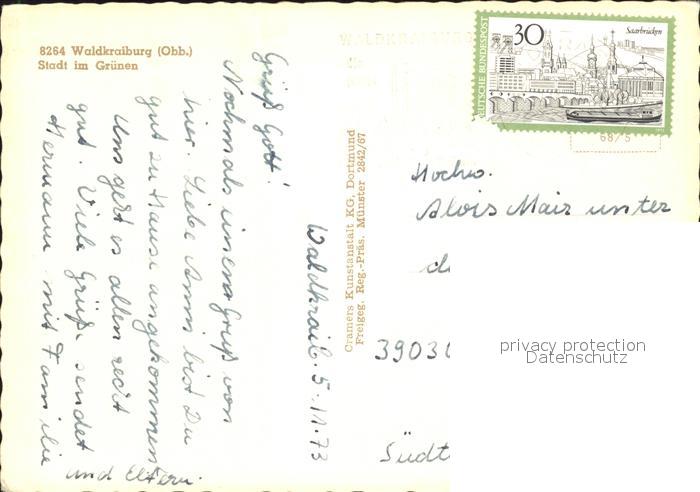 8264 Waldkraiburg (Obb.)
Stadt im Grünen
Grüß Gott!
Nochmals einen Gruß von
hier. Liebe Anni bist Du
gut zu Hause angekommen
Uns geht es allen recht
gut. Viele Grüße sendet
Hermann mit Familie
und Eltern.
Waldkraib. 5.11.73
Cramers Kunstanstalt KG, Dortmund
Freigeg. Reg.-Präs. Münster 2842/67
WALDKRAIBURG
30
Saarbrücken
DEUTSCHE BUNDESPOST
68/5
Hochw.
Alois Mair unter
d
3903
Südt
privacy protection
Datenschutz